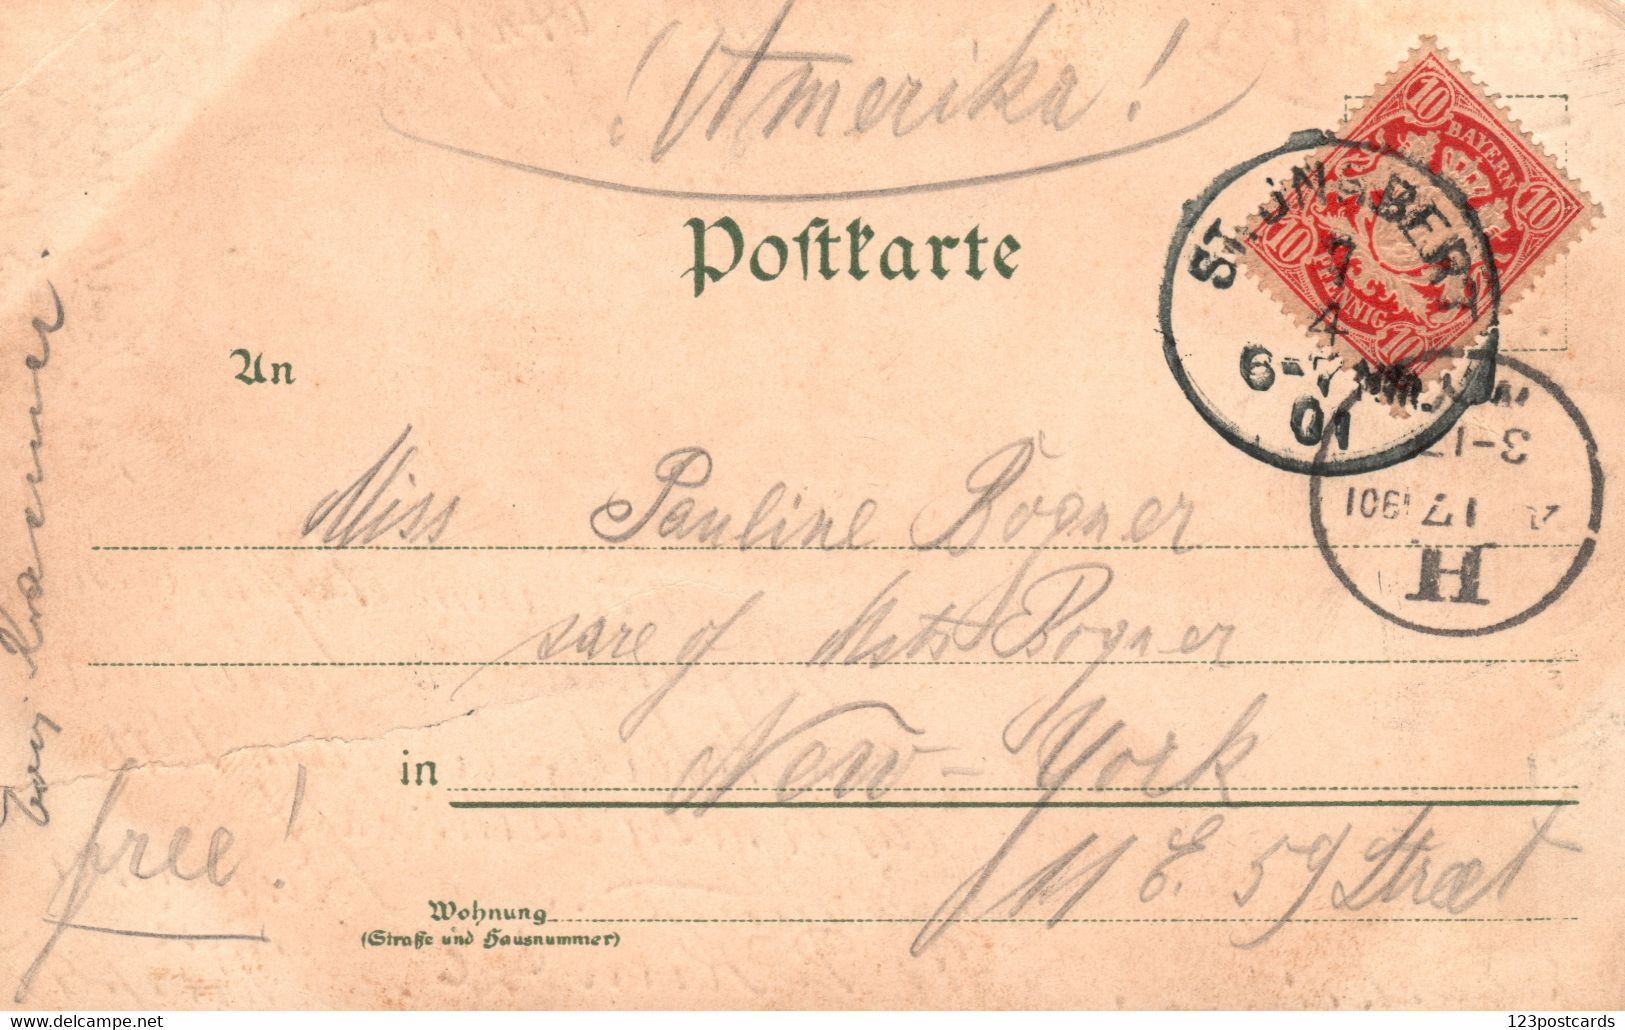 ! Amerika !
Postkarte
10 BAYERN 10
10 PFENNIG 10
ST. INGBERT
7
4
6-7 NM.
01
3-
A 17 1901
H
An
Miss Pauline Bogner
care of Mrs Bogner
in New-York
11 E. 59 Street
Wohnung
(Straße und Hausnummer)
free!
Kraemer.
123postcards
www.delcampe.net